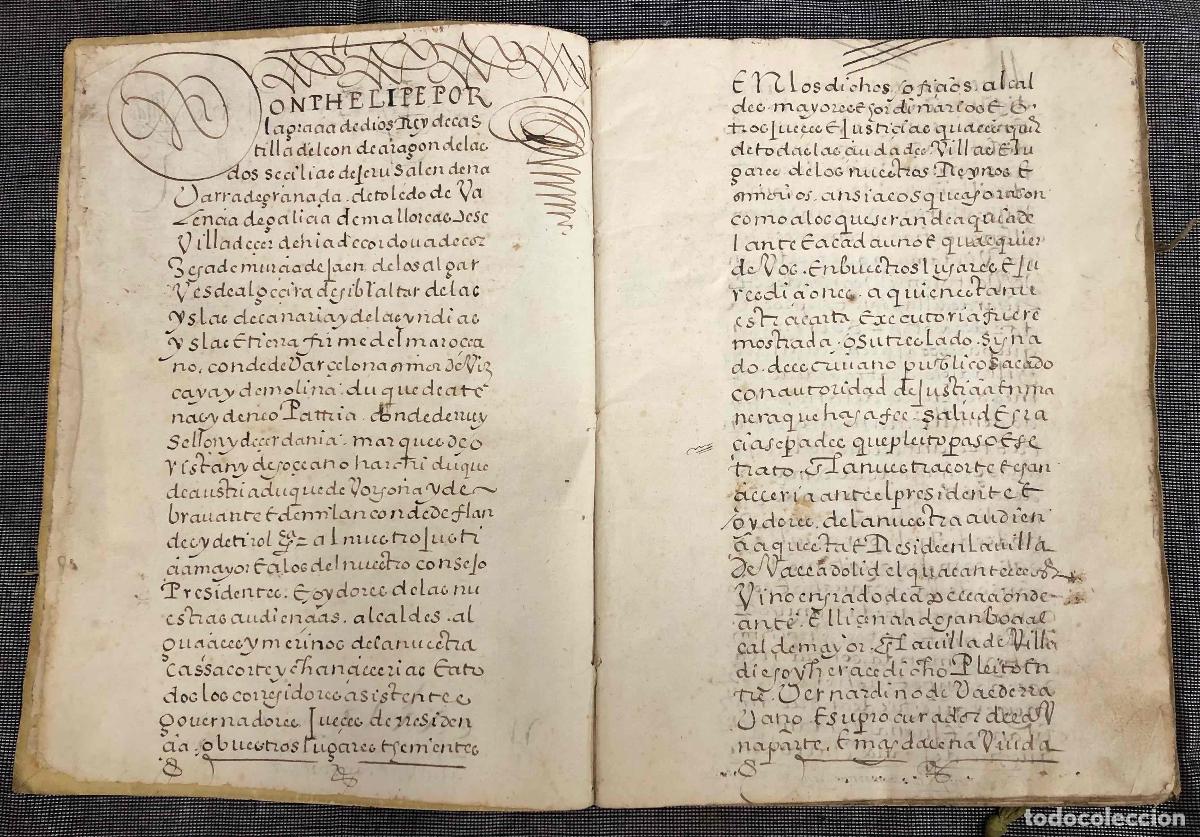 DON PHELIPE POR
la gracia de dios Rey de cas
tilla de leon de aragon de las
dos secilias de Jerusalen de na
Varra de granada. de toledo de Va
Lencia de galicia de mallorcas de se
Villa de cerdenia de cordova de cor
zega de murcia de Jaen. de los algar
Ves de algecira de gibraltar de las
yslas de canaria y de las yndias
yslas E tierra firme del mar occea
no. conde de Varcelona señor de Viz
caya y de molina. duque de ate
nas y de neo Pattria. conde de ruy
sellon y de cerdania. marques de o
ristan y de goceano harchi duque
de austria duque de Vorgoña y de
bravante E de milan conde de flan
des y de tirol = al nuestro Justi
cia mayor E a los del nuestro consejo
Presidentes. E oydores de las nu
estras audiencias. alcaldes. al
guaciles y merinos de la nuestra
cassa corte y chancellerias E a to
dos los corregidores asistente e
governadores Jueces de rresiden
cia. o buestros lugares thenientes
EN los dichos oficios alcal
des mayores E hordinarios E o
tros Jueces E Justicias quales quier
de todas las ciudades Villas E lu
gares de los nuestros Reynos E
señorios. ansi a los que agora son
como a los que seran de aqui ade
lante E a cada uno E qualquier
de Vos. En buestros lugares E Ju
resdiciones. a quien esta nu
estra carta Executoria fuere
mostrada. o su treslado. signa
do. de escrivano publico sacado
con autoridad de Justicia En ma
nera que haga fee. Salud E gra
cia sepades que pleito paso E se
trato. En la nuestra corte E chan
celleria ante el presidente E
oydores. de la nuestra audien
cia que esta E Reside en la villa
de Valladolid el qual ante ellos
Vino en grado de apelacion de
ante. El licenciado sanboa al
calde mayor. En la villa de Villa
diego y hera el dicho Pleito En
tre. Vernardino de Valderra
Vano E su procurador de la V
na parte. E magdalena Viuda
todocoleccion